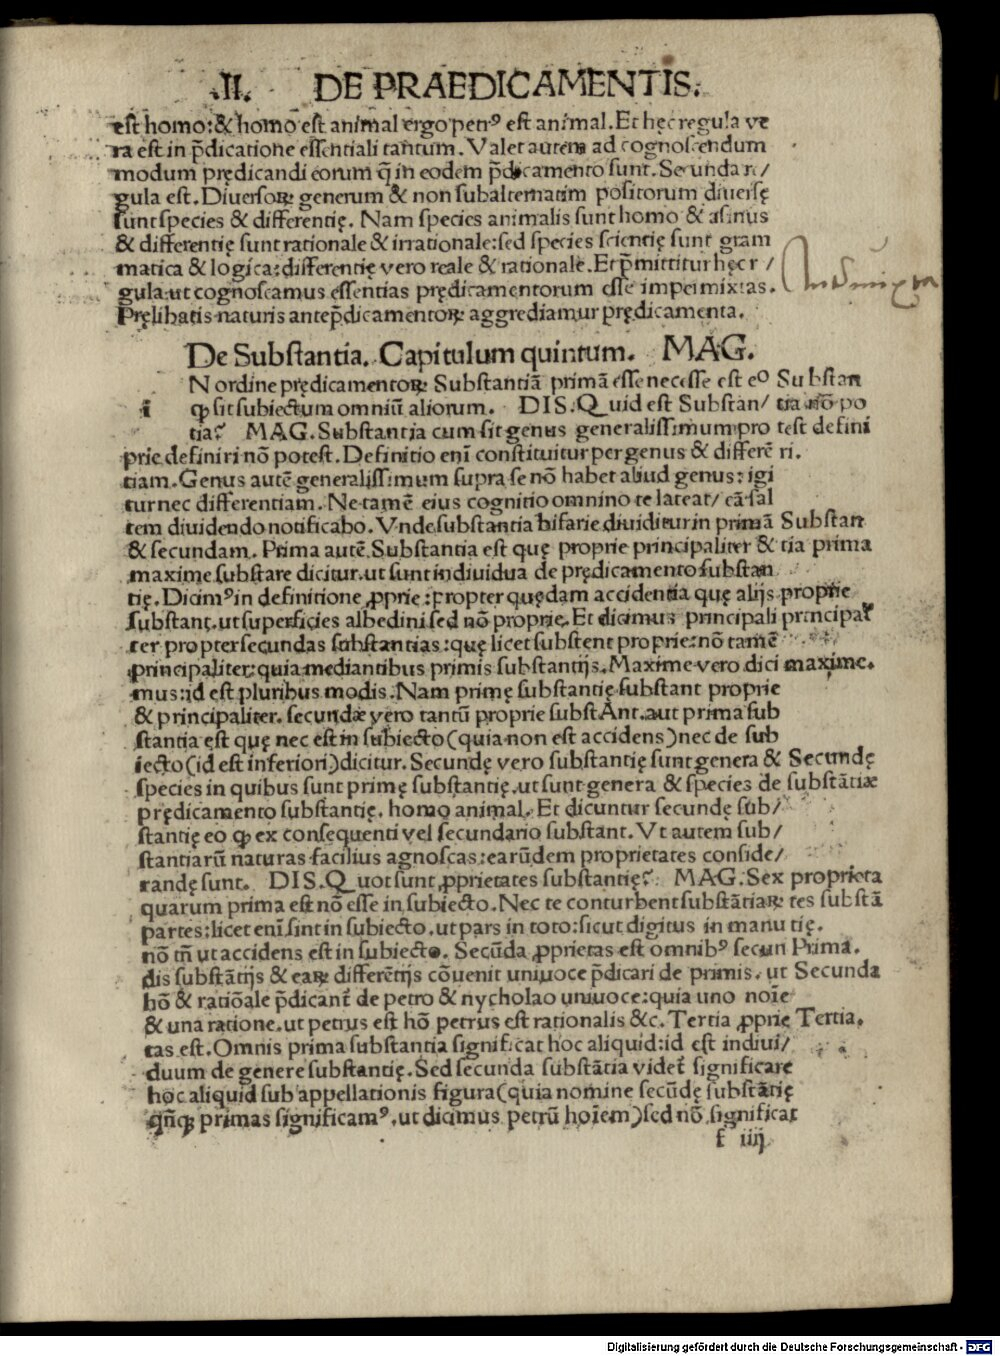 .II. DE PRAEDICAMENTIS.
est homo:& homo est animal ergo petrꝰ est animal. Et hęc regula ve
ra est in p̄dicatione essentiali tantum. Valet autem ad cognoscendum
modum prędicandi eorum q̄ in eodem p̄dicamento sunt. Secunda re/
gula est. Diuersoꝝ generum & non subalternatim positorum diuersę
sunt species & differentię. Nam species animalis sunt homo & asinus
& differentię sunt rationale & irrationale: sed species scientię sunt gram
matica & logica: differentię vero reale & rationale. Et p̄mittitur hęc r/
gula. ut cognoscamus essentias prędicamentorum esse impermixtas.
Pręlibatis naturis antep̄dicamentoꝝ aggrediamur prędicamenta.
De Substantia. Capitulum quintum. MAG.
i N ordine prędicamentoꝝ Substantiā primā esse necesse est eo Substan
ꝙ sit subiectum omniū aliorum. DIS. Quid est Substan/ tia nō po
tia? MAG. Substantia cum sit genus generalissimum pro test defini
prie definiri nō potest. Definitio eni constituitur per genus & differē ri.
tiam. Genus autē generalissimum supra se nō habet aliud genus: igi
tur nec differentiam. Ne tamē eius cognitio omnino te lateat/ eā sal
tem diuidendo notificabo. Vnde substantia bifarie diuiditur in primā Substan
& secundam. Prima autē Substantia est quę proprie principaliter & tia prima
maxime substare dicitur. ut sunt indiuidua de prędicamento substan
tię. Dicimꝰ in definitione ꝓprie: propter quędam accidentia quę alijs proprie
substant. ut superficies albedini sed nō proprie. Et dicimus principali principal
ter propter secundas substantias: quę licet substent proprie: nō tamē
principaliter: quia mediantibus primis substantijs. Maxime vero dici maxime.
mus: id est pluribus modis. Nam primę substantię substant proprie
& principaliter. secundæ vero tantū proprie substAnt. aut prima sub
stantia est quę nec est in subiecto (quia non est accidens) nec de sub
iecto (id est inferiori) dicitur. Secundę vero substantię sunt genera & Secundę
species in quibus sunt primę substantię. ut sunt genera & species de substātiæ
prędicamento substantię. homo animal. Et dicuntur secundę sub/
stantię eo ꝙ ex consequenti vel secundario substant. Vt autem sub/
stantiarū naturas facilius agnoscas: earūdem proprietates conside/
randę sunt. DIS. Quot sunt ꝓprietates substantię? MAG. Sex proprieta
quarum prima est nō esse in subiecto. Nec te conturbent substātiaꝝ tes substā
partes: licet eni sint in subiecto. ut pars in toto: sicut digitus in manu tię.
nō tn̄ ut accidens est in subiecto. Secūda ꝓprietas est omnibꝰ secun Prima.
dis substātijs & eaꝝ differētijs cōuenit uniuoce p̄dicari de primis. ut Secunda
hō & ratiōale p̄dicant̄ de petro & nycholao uniuoce: quia uno noīe
& una ratione. ut petrus est hō petrus est rationalis &c. Tertia ꝓprie Tertia.
tas est. Omnis prima substantia significat hoc aliquid: id est indiui/
duum de genere substantię. Sed secunda substātia videt̄ significare
hoc aliquid sub appellationis figura (quia nomine secūdę substātię
qn̄qꝫ primas significamꝰ. ut dicimus petrū hoīem) sed nō significat
f iiij
Digitalisierung gefördert durch die Deutsche Forschungsgemeinschaft - DFG